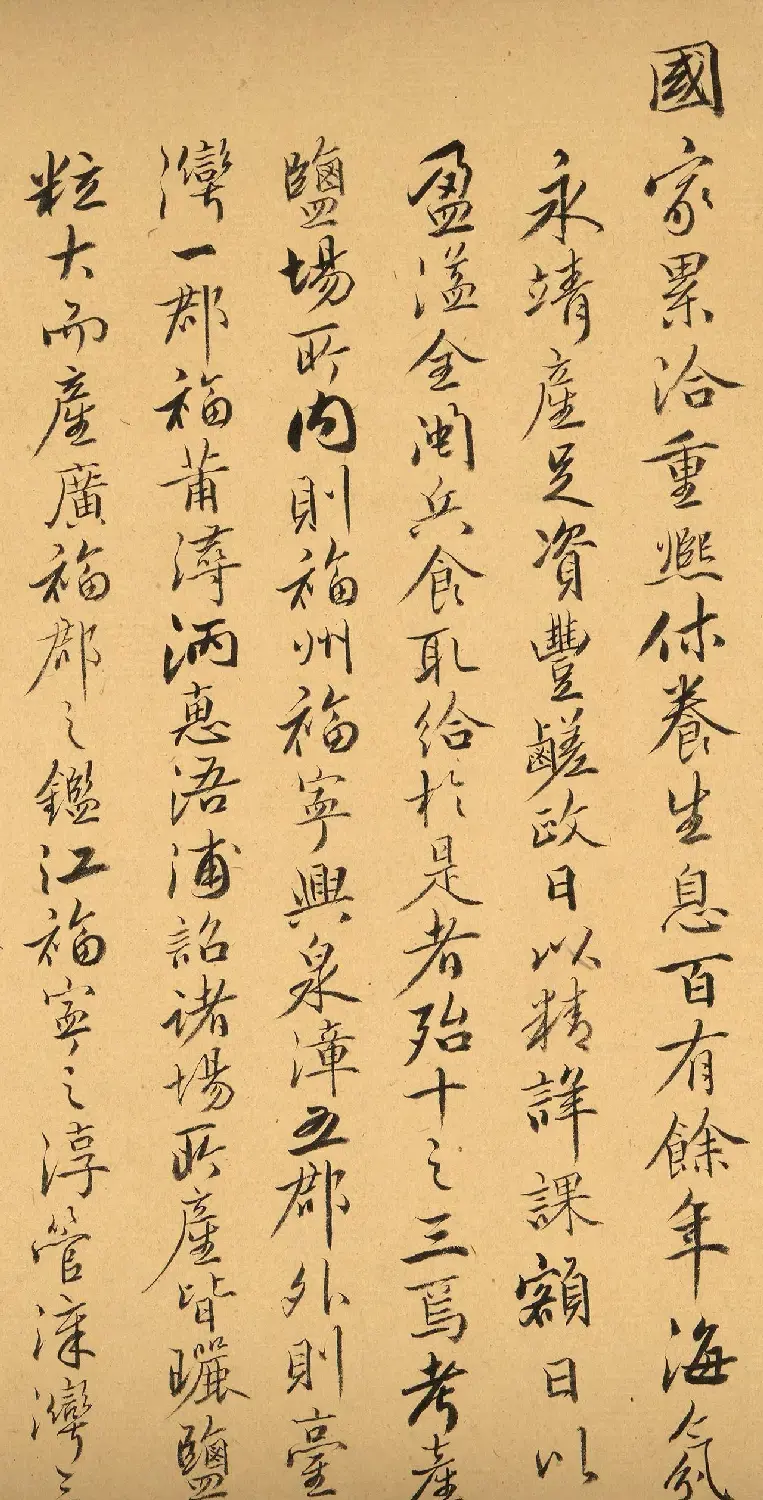 國家累洽重熙休養生息百有餘年海氛
永靖產足資豐鹺政日以精詳課額日以
盈溢全閩兵食取給於是者殆十之三焉考產
鹽場所內則福州福寧興泉漳五郡外則臺
灣一郡福莆潯洒惠浯浦詔諸場所產皆曬鹽
粒大而產廣福郡之鑑江福寧之淳管漳灣之